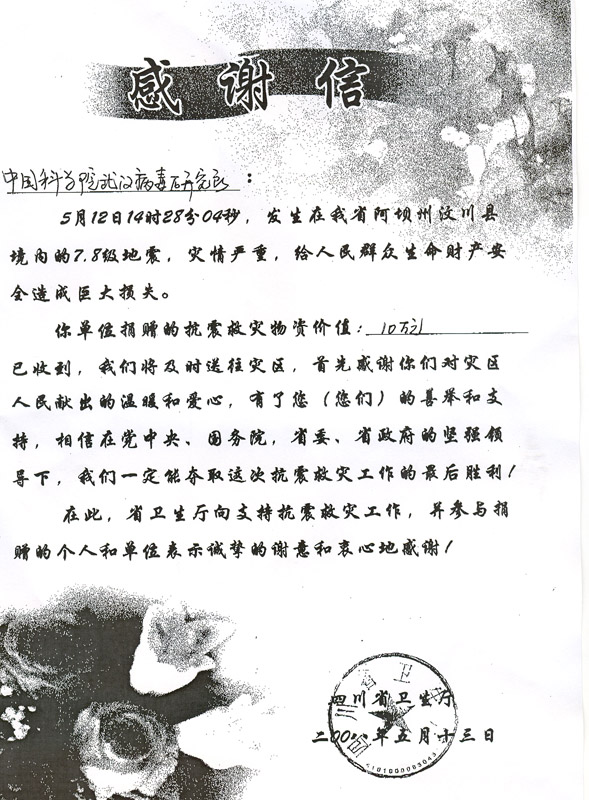 感谢信
中国科学院武汉病毒研究所：
5月12日14时28分04秒，发生在我省阿坝州汶川县
境内的7.8级地震，灾情严重，给人民群众生命财产安
全造成巨大损失。
你单位捐赠的抗震救灾物资价值：10万元
已收到，我们将及时送往灾区，首先感谢你们对灾区
人民献出的温暖和爱心，有了您（您们）的善举和支
持，相信在党中央、国务院，省委、省政府的坚强领
导下，我们一定能夺取这次抗震救灾工作的最后胜利！
在此，省卫生厅向支持抗震救灾工作，并参与捐
赠的个人和单位表示诚挚的谢意和衷心地感谢！
四川省卫生厅
二00八年五月十三日